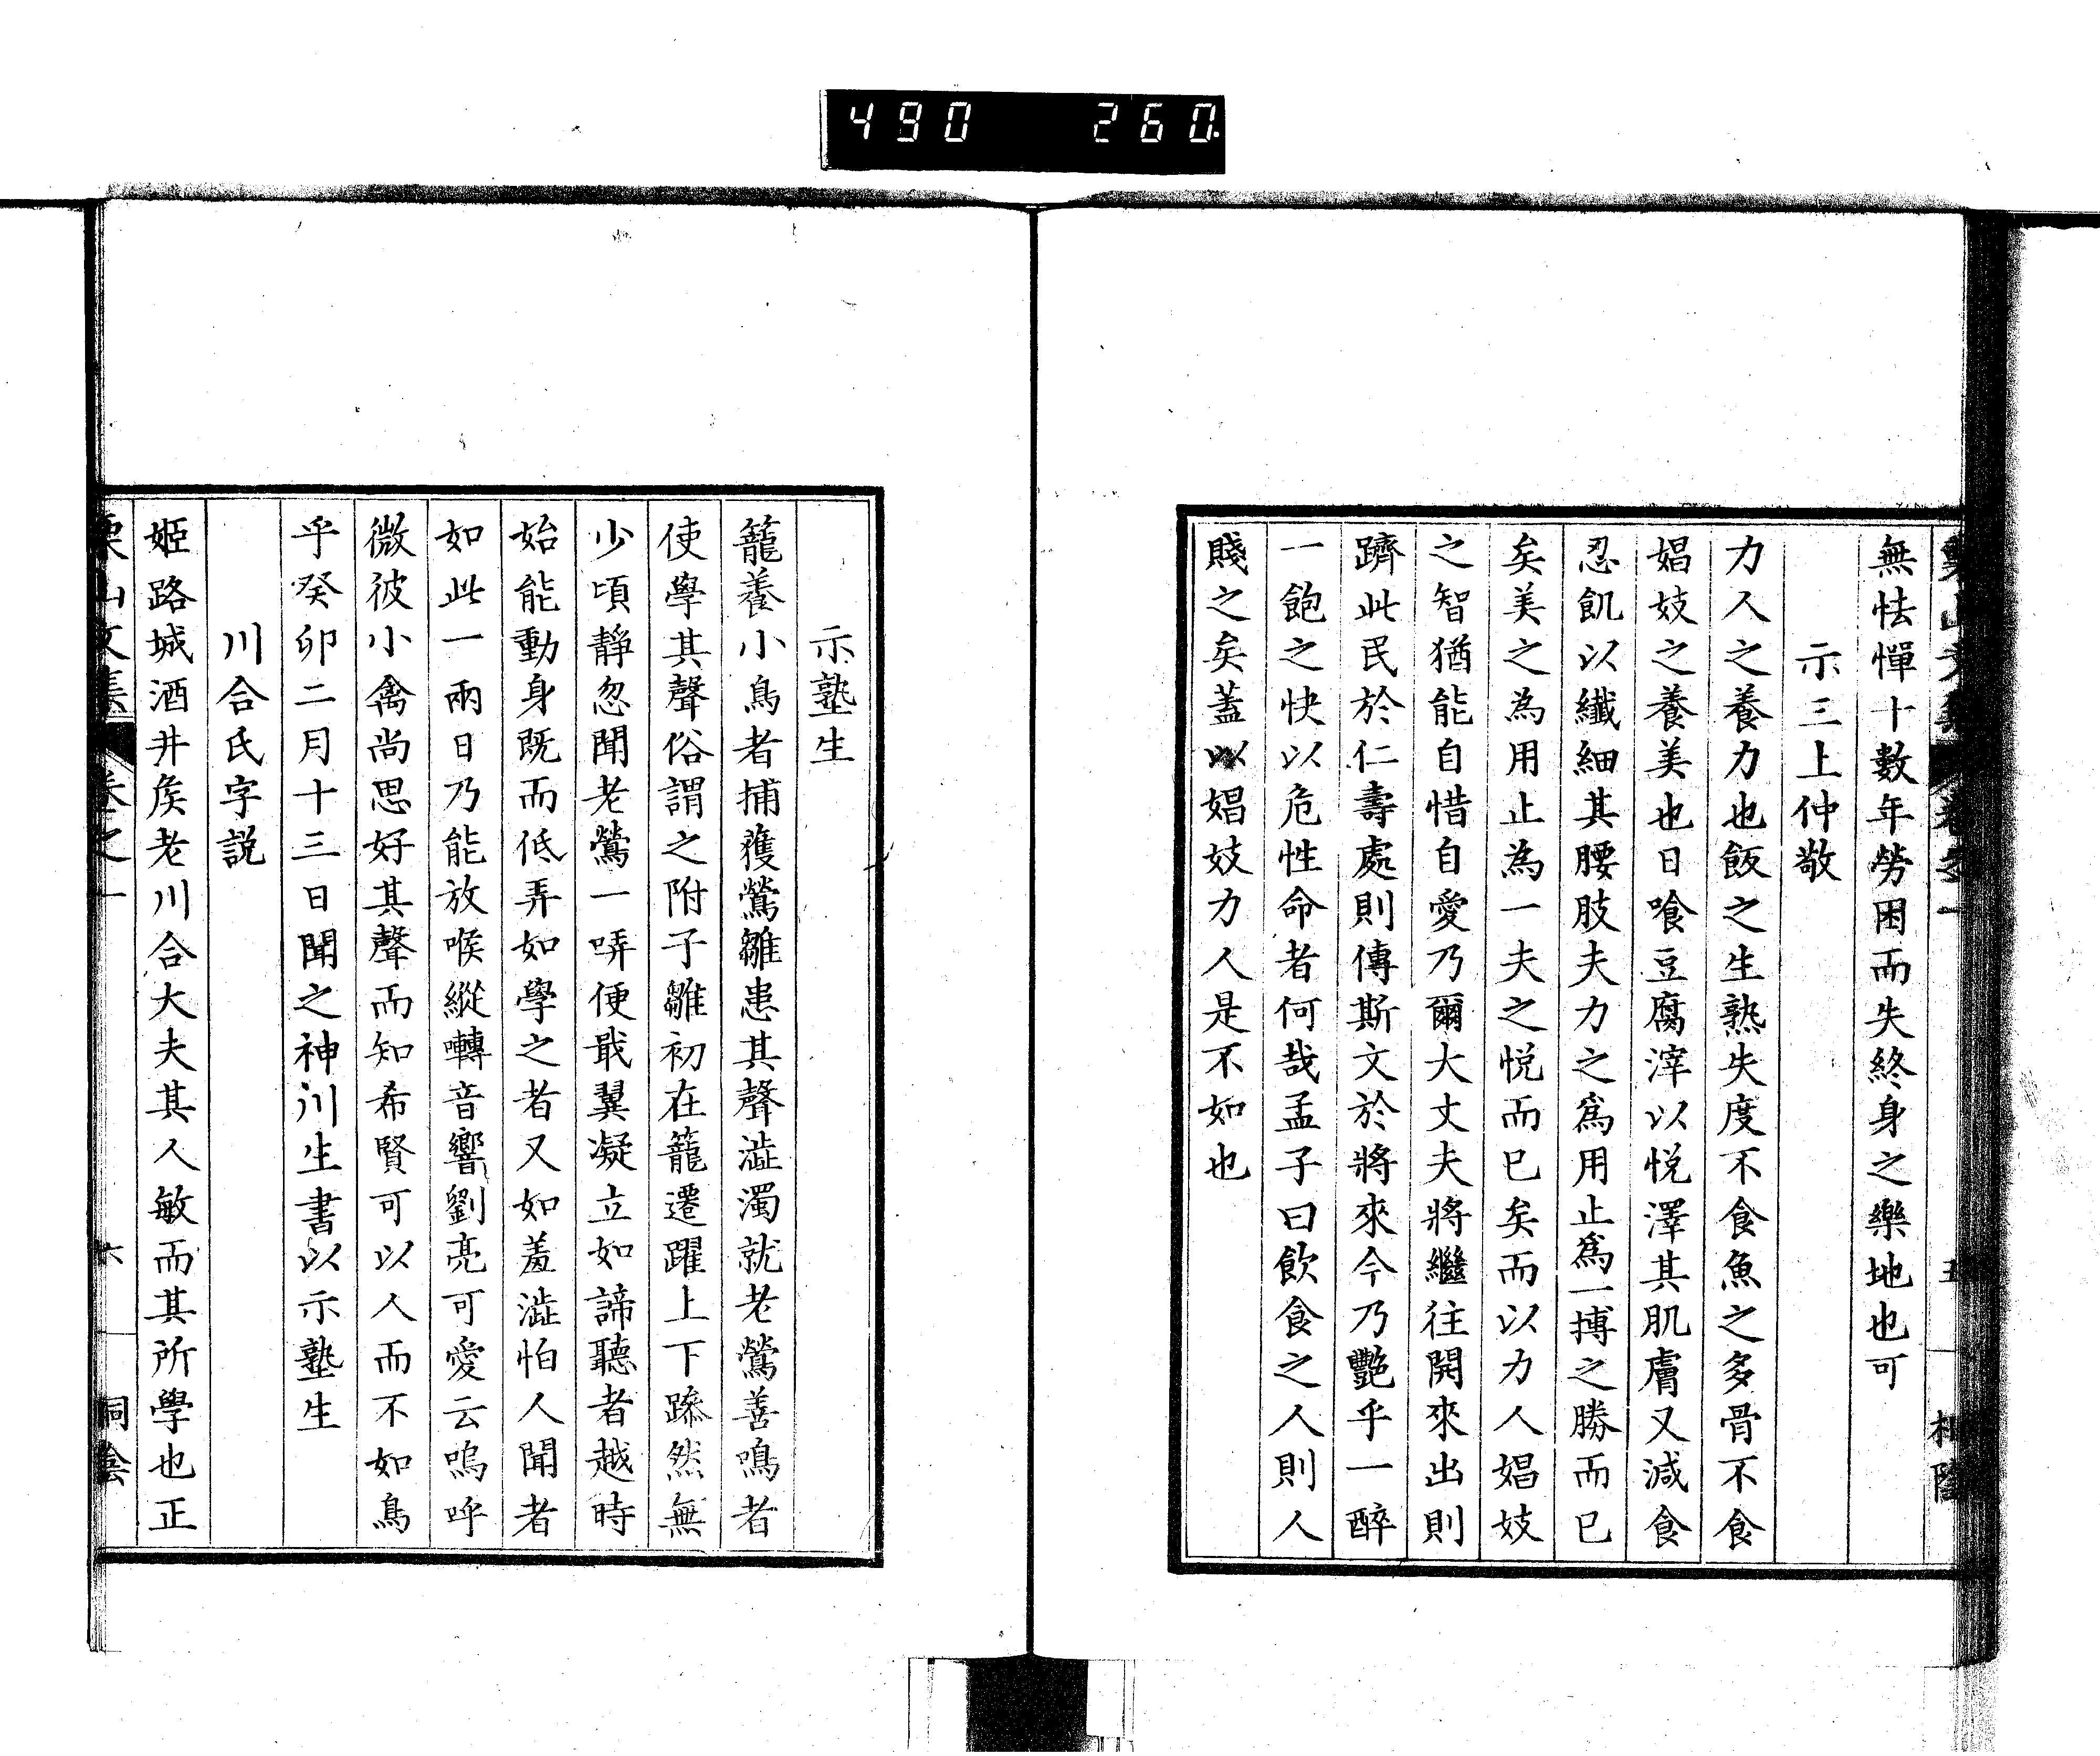 490 260.
無怯憚十數年勞困而失終身之樂地也可
示三上仲敬
力人之養力也飯之生熟失度不食魚之多骨不食
娼妓之養美也日喰豆腐滓以悦澤其肌膚又減食
忍飢以纖細其腰肢夫力之爲用止爲一搏之勝而已
矣美之為用止為一夫之悦而已矣而以力人娼妓
之智猶能自惜自愛乃爾大丈夫將繼往開來出則
躋此民於仁壽處則傳斯文於將來今乃艷乎一醉
一飽之快以危性命者何哉孟子曰飲食之人則人
賤之矣蓋以娼妓力人是不如也
示塾生
籠養小鳥者捕獲鶯雛患其聲澁濁就老鶯善鳴者
使學其聲俗謂之附子雛初在籠遷躍上下躁然無
少頃靜忽聞老鶯一哢便戢翼凝立如諦聽者越時
始能動身既而低弄如學之者又如羞澁怕人聞者
如此一兩日乃能放喉縱囀音響劉亮可愛云嗚呼
微彼小禽尚思好其聲而知希賢可以人而不如鳥
乎癸卯二月十三日聞之神川生書以示塾生
川合氏字説
姬路城酒井矦老川合大夫其人敏而其所學也正
栗山文集 卷之一 六